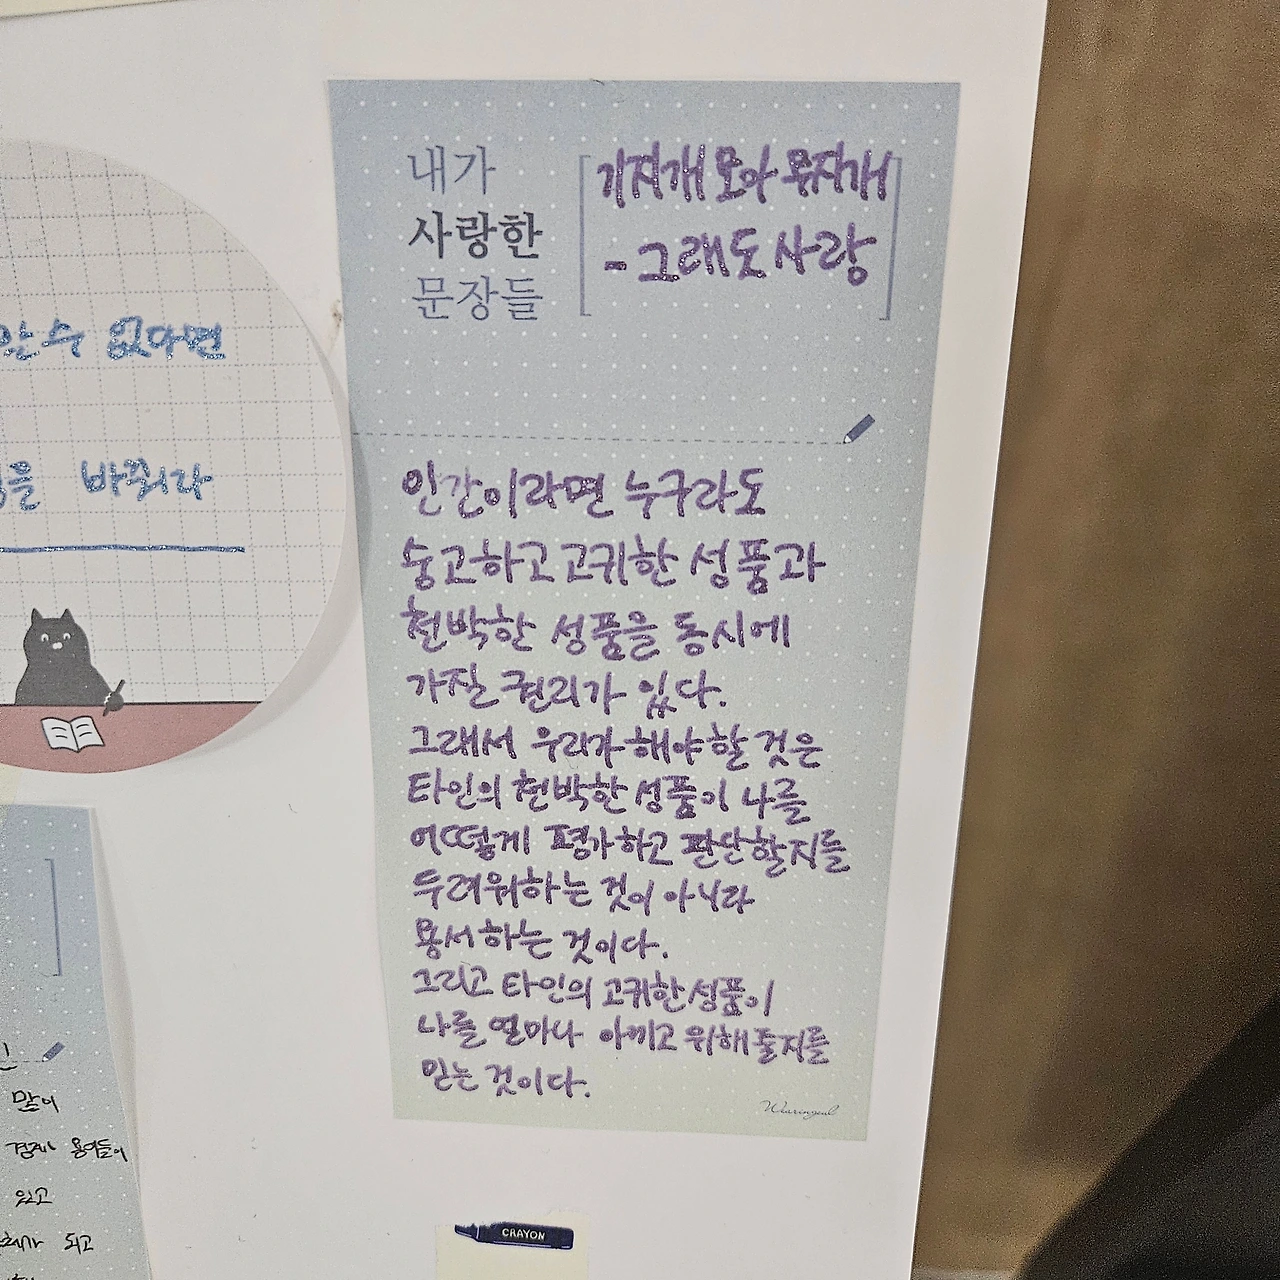 내가
사랑한
문장들
기지개 모아 무지개
- 그래도 사랑
인간이라면 누구라도
숭고하고 고귀한 성품과
천박한 성품을 동시에
가질 권리가 있다.
그래서 우리가 해야 할 것은
타인의 천박한 성품이 나를
어떻게 평가하고 판단할지를
두려워하는 것이 아니라
용서하는 것이다.
그리고 타인의 고귀한 성품이
나를 얼마나 아끼고 위해줄지를
믿는 것이다.
Wearingeul
알 수 없다면
을 바꿔라
말이
경제 용어들이
있고
되고
CRAYON